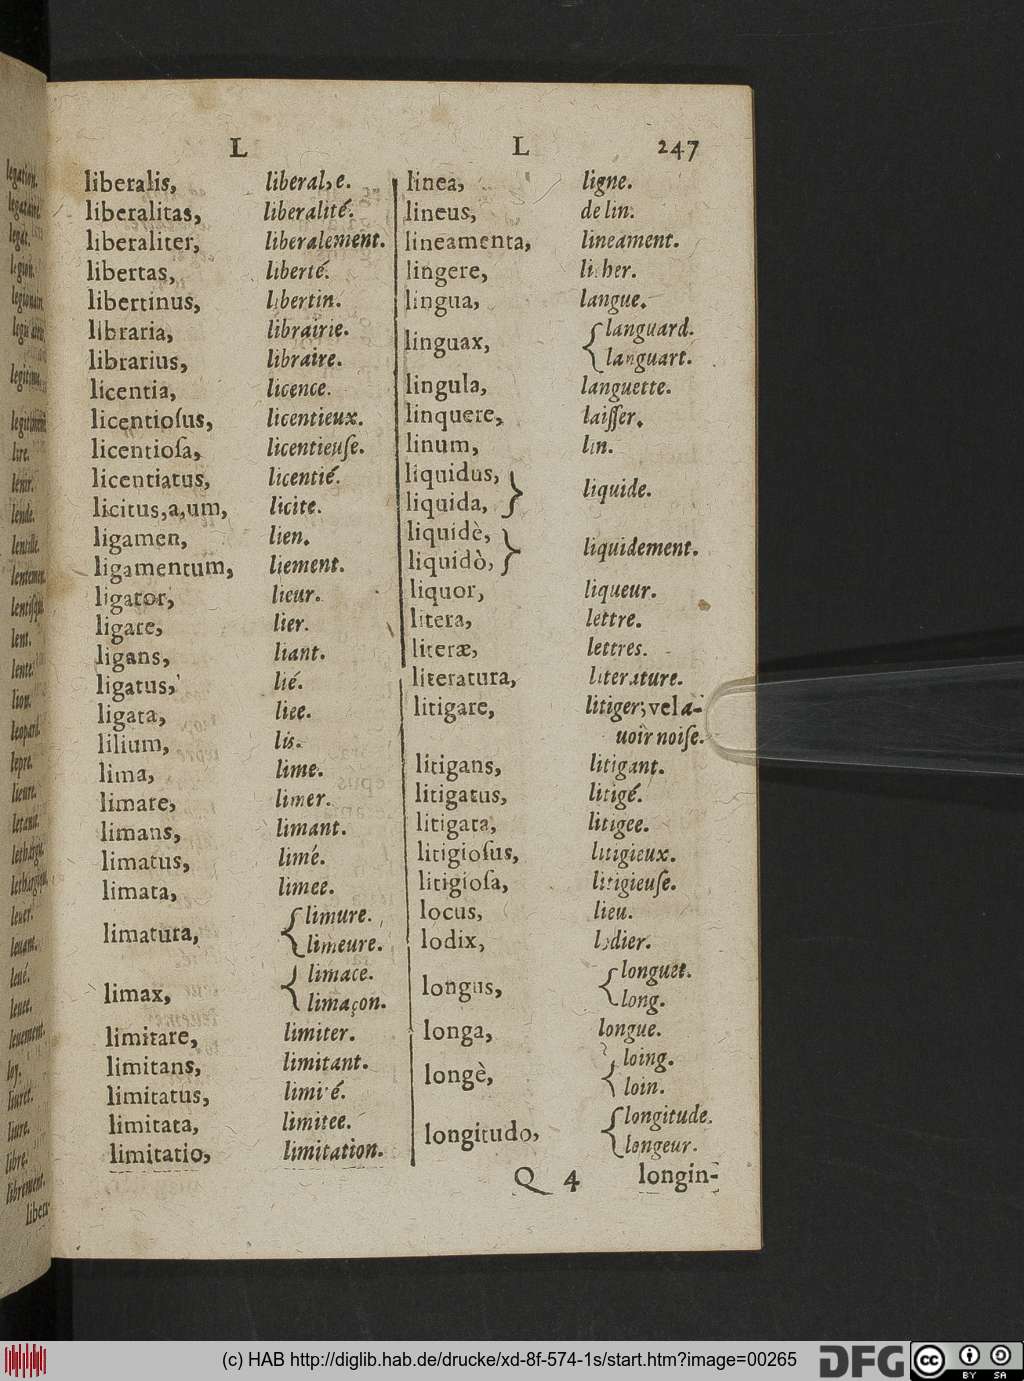 L L 247
liberalis, liberal, e.
liberalitas, liberalité.
liberaliter, liberalement.
libertas, liberté.
libertinus, libertin.
libraria, librairie.
librarius, libraire.
licentia, licence.
licentioſus, licentieux.
licentioſa, licentieuſe.
licentiatus, licentié.
licitus,a,um, licite.
ligamen, lien.
ligamentum, liement.
ligator, lieur.
ligare, lier.
ligans, liant.
ligatus, lié.
ligata, liee.
lilium, lis.
lima, lime.
limare, limer.
limans, limant.
limatus, limé.
limata, limee.
limatura, { limure.
limeure.
limax, { limace.
limaçon.
limitare, limiter.
limitans, limitant.
limitatus, limité.
limitata, limitee.
limitatio, limitation.
linea, ligne.
lineus, de lin.
lineamenta, lineament.
lingere,
lingua, langue.
linguax, { languard.
languart.
lingula, languette.
linquere, laiſſer.
linum, lin.
liquidus,
liquida, } liquide.
liquidè,
liquidò, } liquidement.
liquor, liqueur.
litera, lettre.
literæ, lettres.
literatura, literature.
litigare, litiger, vel a-
uoir noiſe.
litigans, litigant.
litigatus, litigé.
litigata, litigee.
litigioſus, litigieux.
litigioſa, litigieuſe.
locus, lieu.
lodix, lodier.
longus, { longuet.
long.
longa, longue.
longè, { loing.
loin.
longitudo, { longitude.
longeur.
Q 4 longin-
legat.
legion.
lire.
lende.
lentille.
lent.
lente.
lion.
leopard.
lepre.
leuer.
leuant.
leué.
leuee.
leuement.
loy.
liure.
libre.
librement.
(c) HAB http://diglib.hab.de/drucke/xd-8f-574-1s/start.htm?image=00265
DFG
cc BY SA